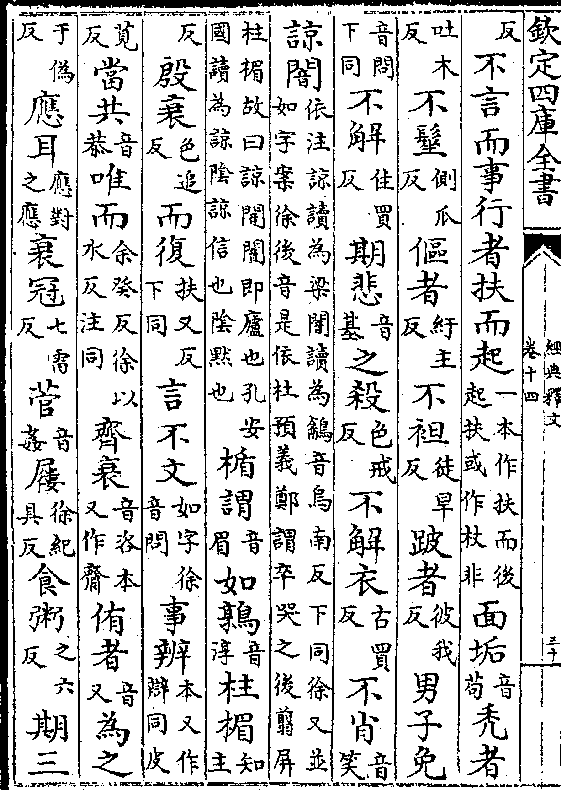 欽定四庫全書
經典釋文
卷十四
三十
反不言而事行者扶而起一本作扶而後起扶或作杖非面垢音苟秃者
吐木反不髽側瓜反傴者紆主反不袒徒旱反跛者彼我反男子免
音問下同不解佳買反期悲音基之殺色戒反不解衣古買反不肖音笑
諒闇依注諒讀為梁闇讀為鶕音烏南反下同徐又並如字案徐後音是依杜預義鄭謂卒哭之後翦屏
柱楣故曰諒闇闇即廬也孔安國讀為諒陰諒信也陰黙也楯謂音眉如鶉音淳柱楣知主
反殷衰色追反而復扶又反下同言不文如字徐音問事辨本又作辯同皮
莧反當共音恭唯而余癸反徐以水反注同齊衰音咨本又作齌侑者音又為之
于偽反應耳應對之應衰冠七雷反菅音姦屨徐紀具反食粥之六反期三